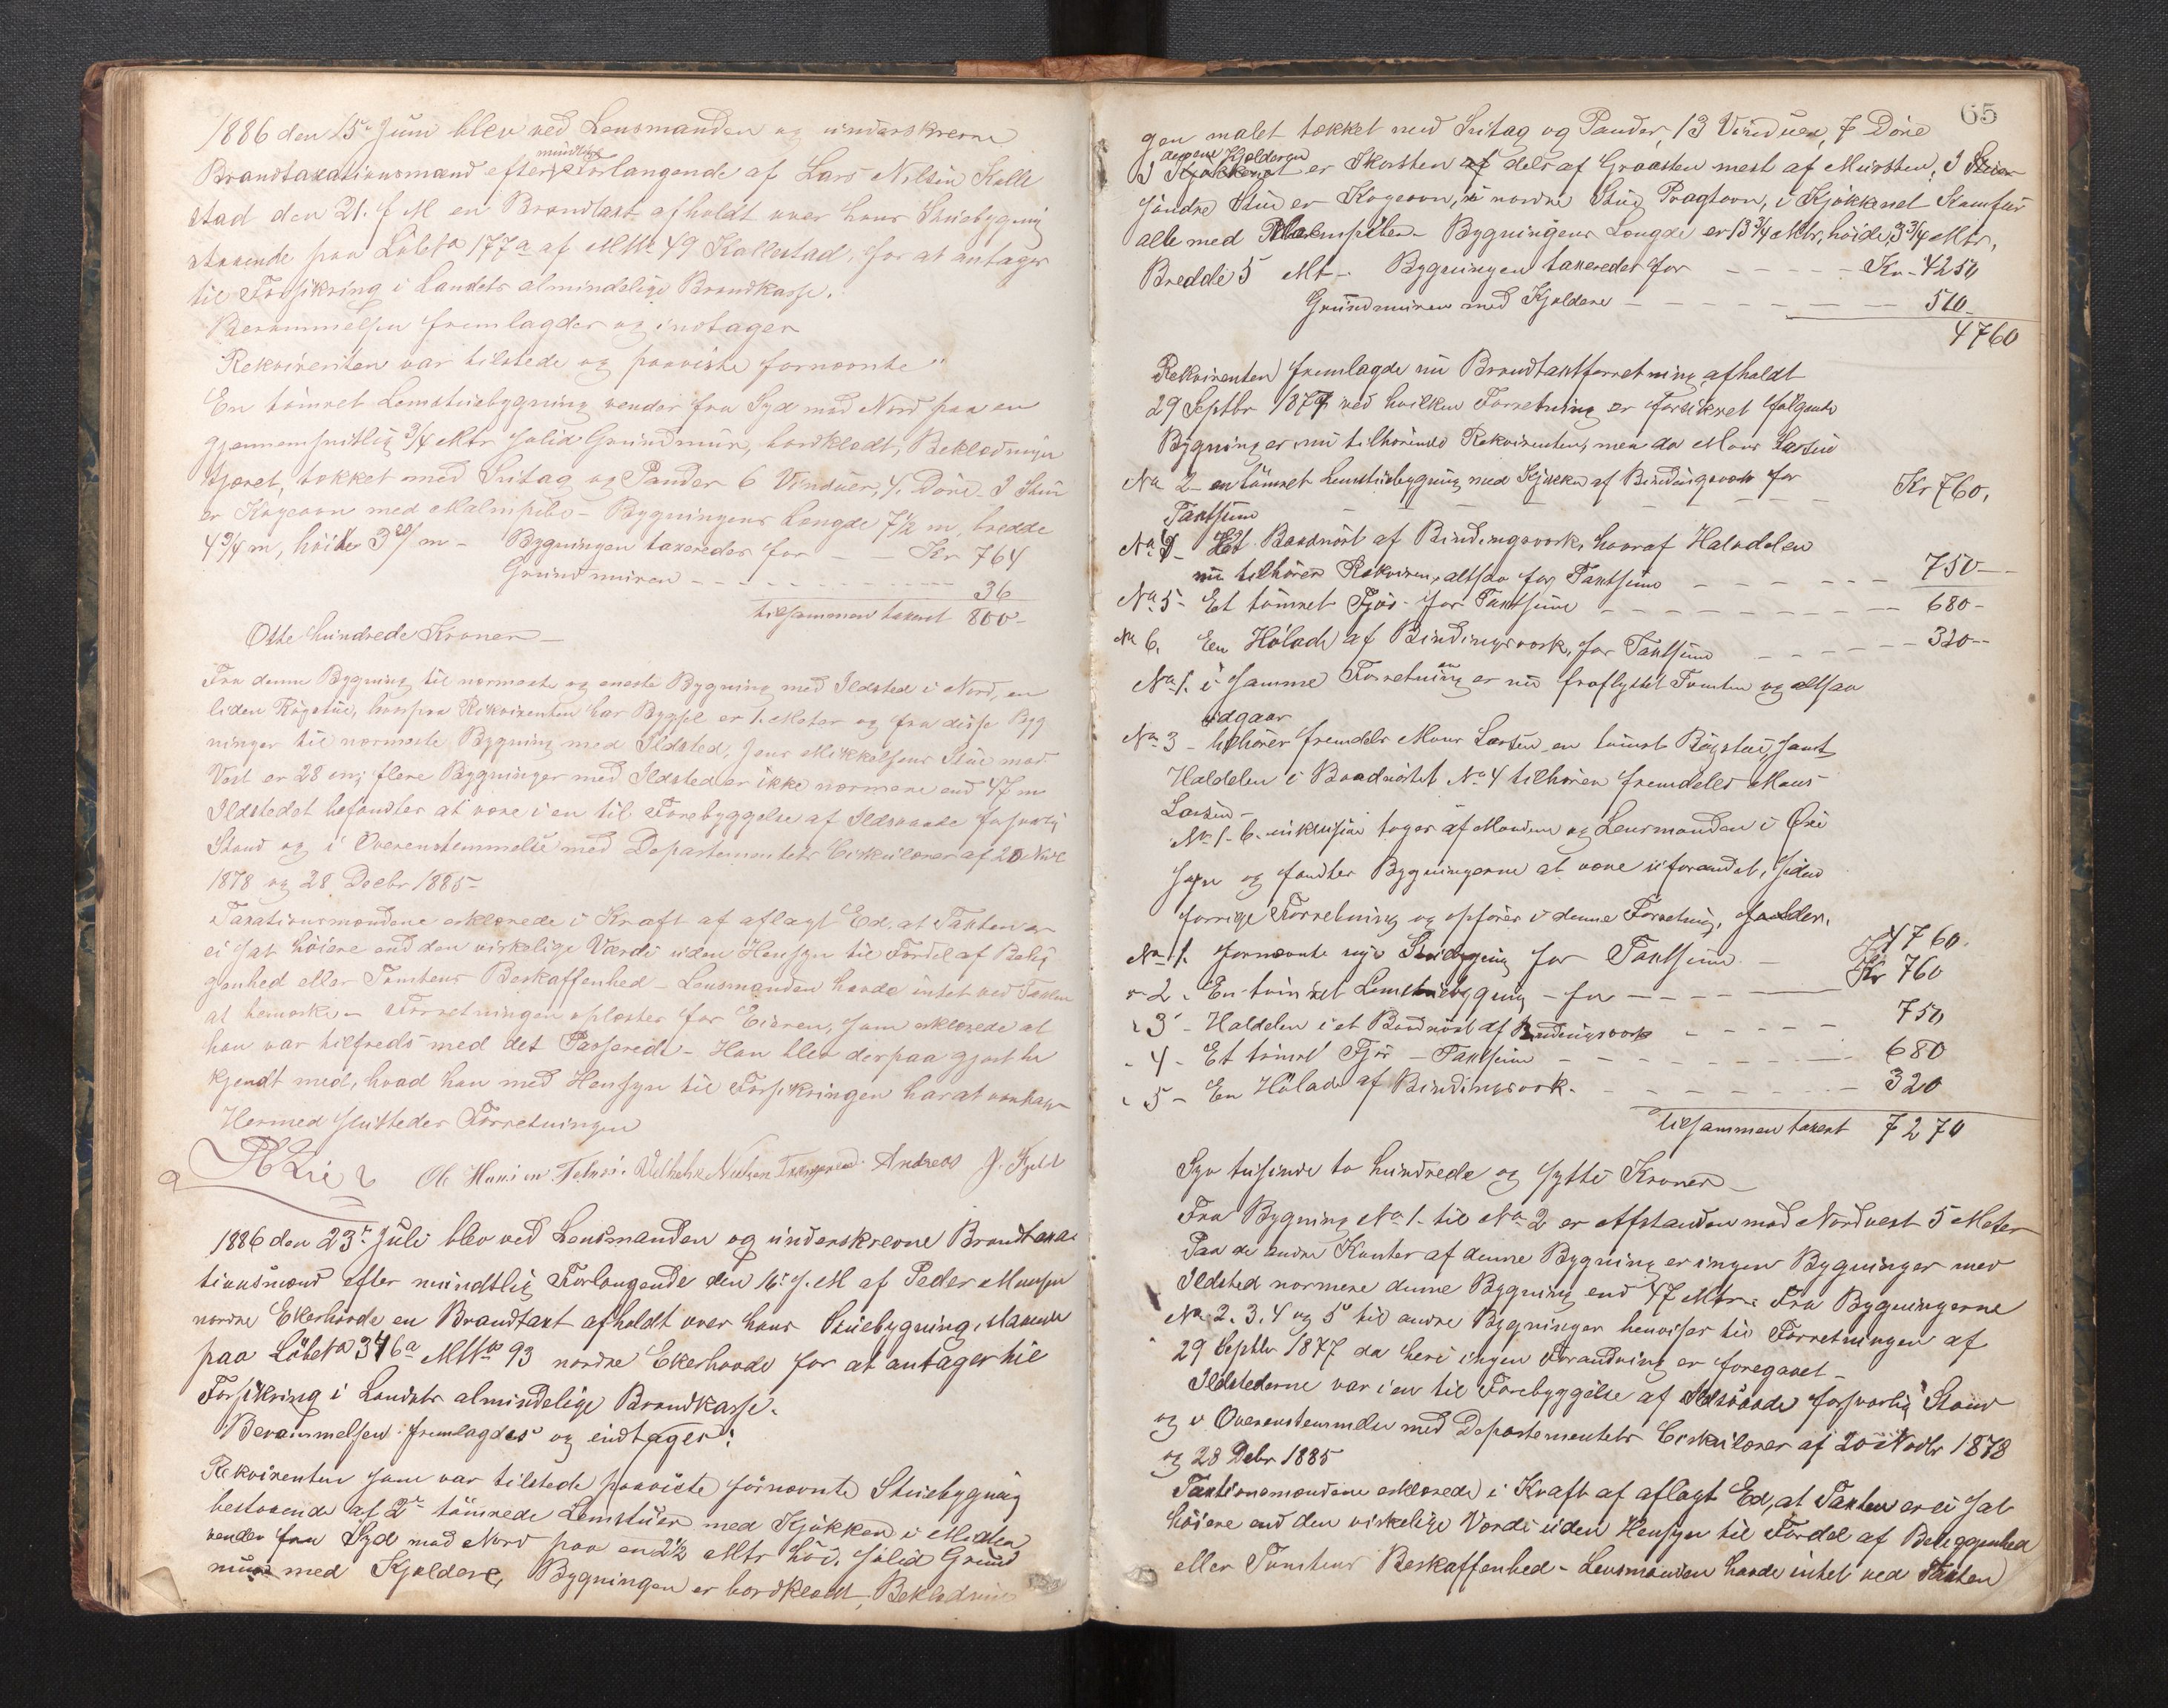 1886 den 25de Juni blev ved Lensmanden og underskrevne
Brandtaxationsmænd efter mundtlig Forlangende af Lars Nilsen Kalle
stad den 21. f M en Brandtaxt afholdt over hans Stuebygning
staaende paa Löbeno 177a af MNo 49 Kallestad, for at antages
til Forsikring i Landets almindelige Brandkasse.
Berammelsen fremlagdes og indtages
Rekvirenten var tilstede og paaviste fornævnte "
En tömret Lemstuebygning vender fra Syd mod Nord paa en
gjennemsnitlig 3/4 Mtr solid Grundmur, bordklædt, Beklædningen
tjæret, tækket med Sutag og Pander 6 Vinduer, 4. Döre I Stuen
er Kogeovn med Malmpibe - Bygningens Længde 7 1/2 m, bredde
4 3/4 m, höide 3 20/ m - Bygningen taxeredes for - - Kr 764
Grundmuren - - - - - - 36
tilsammen taxeret 800 -
Otte hundrede Kroner -
Fra denne Bygning til nærmeste og eneste Bygning med Ildsted i Nord, en
liden Rögstue, hvorpaa Rekvirenten har Bygsel er 1. Meter og fra disse Byg
ninger til nærmeste Bygning med Ildsted, Jens Mikkelsens Stue mod
Vest er 28 m; flere Bygninger med Ildsted er ikke nærmere end 47 m
Ildstedet befandtes at være i en til Forebyggelse af Ildsvaade forsvarlig
Stand og i Overensstemmelse med Departementets Cirkulærer af 20 Novbr
1878 og 28 Decbr 1885 -
Taxationsmændene erklærede i Kraft af aflagt Ed, at Taxten er
ei sat höiere end den virkelige Værdi uden Hensyn til Fordel af Belig
genhed eller Tomtens Beskaffenhed - Lensmanden havde intet ved Taxten
at bemærke - Forretningen oplæstes for Eieren, som erklærede at
han var tilfreds med det Passerede - Han blev derpaa gjort be
kjendt med, hvad han med Hensyn til Forsikringen har at iagttage
Hermed sluttedes Forretningen
Ole Hansen Vilhelm Nielsen Andreas J. Fjeld
1886 den 23de Juli blev ved Lensmanden og underskrevne Brandtaxa
tionsmænd efter mundtlig Forlangende den 16de s. M af Peder Monsen
nordre Ekerhovde en Brandtaxt afholdt over hans Stuebygning, staaende
paa Löbeno 346a MNo 93 nordre Ekerhovde for at antages til
Forsikring i Landets almindelige Brandkasse.
Berammelsen fremlagdes og indtages:
Rekvirenten som var tilstede paaviste fornævnte Stuebygning
bestaaende af 2de tömrede Lemstuer med Kjökken i Midten
vender fra Syd mod Nord paa en 2 1/2 Mtr höi, solid Grund
mur med Kjeldere, Bygningen er bordklædt, Beklædnin
65
gen malet tækket med Sutag og Pander, 13 Vinduer, 7 Döre
I Kjökkenet er Skorsten dels af Graasten mest af Mursten, I
söndre Stue er Kogeovn, i nordre Stue Pragtovn, i Kjökkenet Komfur
alle med Malmpiber - Bygningens Længde er 13 3/4 Mtr, höide 3 3/4 Mtr,
Bredde 5 Mt - Bygningen taxeredes for - - - - - Kr - 4250
Grundmuren med Kjeldere - - - - - - - 510 -
4760
Rekvirenten fremlagde nu Brandtaxtforretning afholdt
29 Septbr 1877 ved hvilken Forretning er forsikret fölgende
Bygninger nu tilhörende Rekvirenten, men da Mons Larsen
No 2 - en tömret Lemstuebygning med Kjökken af Bindingsværk for
Taxtsum - - - - - - - Kr 760,
No 4 - Et Baadnöst af Bindingsværk, hvoraf Halvdelen
nu tilhörer Rekviren, altsaa for Taxtsum - - - - - - 750 -
No 5 - Et tömret Fjös - for Taxtsum - - - - - - 680 -
No 6, En Hölade af Bindingsværk, for Taxtsum - - - - - 320 -
No 1. i samme Forretning er nu fraflyttet Tomten og altsaa
udgaar
No 3 - tilhörer fremdeles Mons Larsen en tömret Rögstue, samt
Haldelen i Baadnöstet No 4 tilhörer fremdeles Mons
Larsen -
No 1-6. inklusive toges af Mændene og Lensmanden i Öie
syn og fandtes Bygningerne at være uforandret, siden
forrige Forretning og opföres i denne Forretning, saaledes.
No 1. fornævnte nye Stuebygning for Taxtsum - Kr 4760.
" 2 - En tömret Lemstuebygning - for - - - - - Kr 760
" 3 - Haldelen i et Baadnöst af Bindingsværk - - - - - 750
" 4 - Et tömret Fjös - Taxtsum - - - - - - 680
" 5 - En Hölade af Bindingsværk. - - - - - - 320
tilsammen taxeret 7270
Syv tusinde to hundrede og sytti Kroner -
Fra Bygning No 1. til No 2 er Afstanden mod Nordvest 5 Meter
Paa de andre Kanter af denne Bygning er ingen Bygninger med
Ildsted nærmere denne Bygning end 47 Mtr. Fra Bygningerne
No 2. 3. 4 og 5 til andre Bygninger henvises til Forretningen af
29 Septbr 1877 da heri ingen Forandring er foregaaet -
Ildstederne var i en til Forebyggelse af Ildsvaade forsvarlig Stand
og i Overensstemmelse med Departementets Cirkulærer af 20 Novbr 1878
og 28 Debr 1885
Taxtionsmændene erklærede i Kraft af aflagt Ed, at Taxten er ei sat
höiere end den virkelige Værdi uden Hensyn til Fordel af Beliggenhed
eller Tomtens Beskaffenhed - Lensmanden havde intet ved Taxten